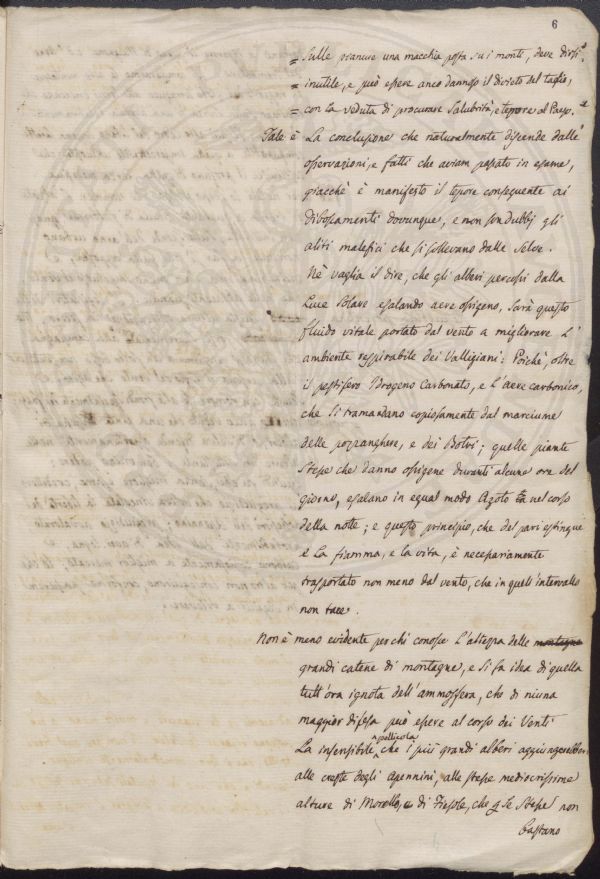 6
= Sulle pianure una macchia posta su i monti, deve dirsi
= inutile, e può essere anco dannoso il divieto del taglio,
= con la veduta di procurare salubrità, e tepore al Paese.
Tale è la conclusione che naturalmente discende dalle
osservazioni, e fatti che aviam passato in esame,
giacchè è manifesto il tepore conseguente ai
disboscamenti dovunque, e non son dubbj gli
aliti malefici che si sollevano dalle selve.
Nè vaglia il dire, che gli alberi percossi dalla
Luce Solare esalando aere ossigeno, sarà questo
fluido vitale portato dal vento a migliorare l'
ambiente respirabile dei Valligiani: Poichè, oltre
il pestifero Idrogeno Carbonato, e l'aere carbonico,
che si tramandano copiosamente dal marciume
delle pozzanghere, e dei Botri; quelle piante
stesse che danno ossigene duranti alcune ore del
giorno, esalano in egual modo Azoto nel corso
della notte; e questo principio, che del pari estingue
e la fiamma, e la vita, è necessariamente
trasportato non meno dal vento, che in quell'intervallo
non tace.
Non è meno evidente per chi conosce l'altezza delle montagne
grandi catene di montagne, e si fa idea di quella
tutt'ora ignota dell'ammosfera, che di niuna
maggior difesa può essere al corso dei Venti
La insensibile pellicola che i più grandi alberi aggiungerebber
alle creste degli Apennini, alle stesse mediocrissime
alture di Morello, e di Fiesole, che se stesse non
bastano